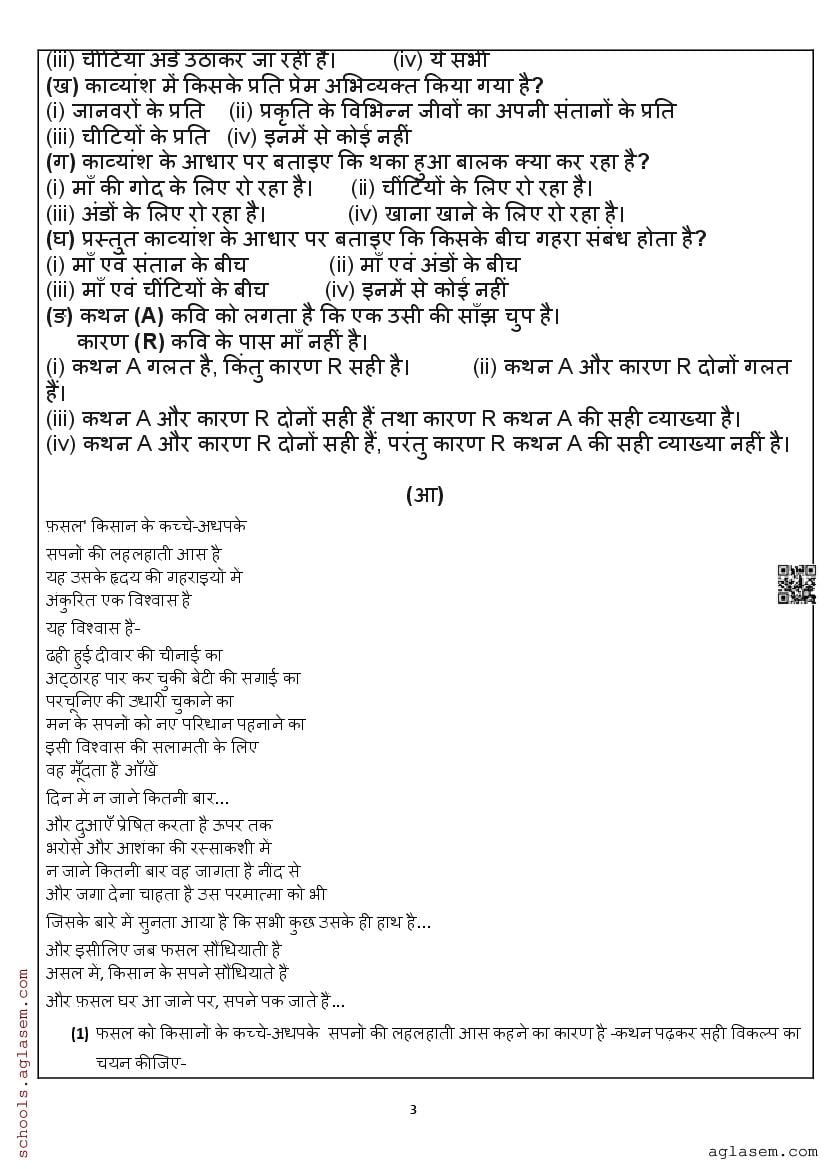 (iii) चींटियाँ अंडे उठाकर जा रही हैं। (iv) ये सभी
(ख) काव्यांश में किसके प्रति प्रेम अभिव्यक्त किया गया है?
(i) जानवरों के प्रति (ii) प्रकृति के विभिन्न जीवों का अपनी संतानों के प्रति
(iii) चीटियों के प्रति (iv) इनमें से कोई नहीं
(ग) काव्यांश के आधार पर बताइए कि थका हुआ बालक क्या कर रहा है?
(i) माँ की गोद के लिए रो रहा है। (ii) चींटियों के लिए रो रहा है।
(iii) अंडों के लिए रो रहा है। (iv) खाना खाने के लिए रो रहा है।
(घ) प्रस्तुत काव्यांश के आधार पर बताइए कि किसके बीच गहरा संबंध होता है?
(i) माँ एवं संतान के बीच (ii) माँ एवं अंडों के बीच
(iii) माँ एवं चींटियों के बीच (iv) इनमें से कोई नहीं
(ङ) कथन (A) कवि को लगता है कि एक उसी की साँझ चुप है।
कारण (R) कवि के पास माँ नहीं है।
(i) कथन A गलत है, किंतु कारण R सही है। (ii) कथन A और कारण R दोनों गलत
हैं।
(iii) कथन A और कारण R दोनों सही हैं तथा कारण R कथन A की सही व्याख्या है।
(iv) कथन A और कारण R दोनों सही हैं, परंतु कारण R कथन A की सही व्याख्या नहीं है।
(आ)
फ़सल' किसान के कच्चे-अधपके
सपनों की लहलहाती आस है
यह उसके हृदय की गहराइयों में
अंकुरित एक विश्वास है
यह विश्वास है-
ढही हुई दीवार की चीनाई का
अट्ठारह पार कर चुकी बेटी की सगाई का
परचूनिए की उधारी चुकाने का
मन के सपनों को नए परिधान पहनाने का
इसी विश्वास की सलामती के लिए
वह मूँदता है आँखें
दिन में न जाने कितनी बार...
और दुआएँ प्रेषित करता है ऊपर तक
भरोसे और आशंका की रस्साकशी में
न जाने कितनी बार वह जागता है नींद से
और जगा देना चाहता है उस परमात्मा को भी
जिसके बारे में सुनता आया है कि सभी कुछ उसके ही हाथ है...
और इसीलिए जब फसल सौंधियाती है
असल में, किसान के सपने सौंधियाते है
और फ़सल घर आ जाने पर, सपने पक जाते हैं...
(1) फ़सल को किसानों के कच्चे-अधपके सपनों की लहलहाती आस कहने का कारण है -कथन पढ़कर सही विकल्प का
चयन कीजिए-
3
schools.aglasem.com
aglasem.com